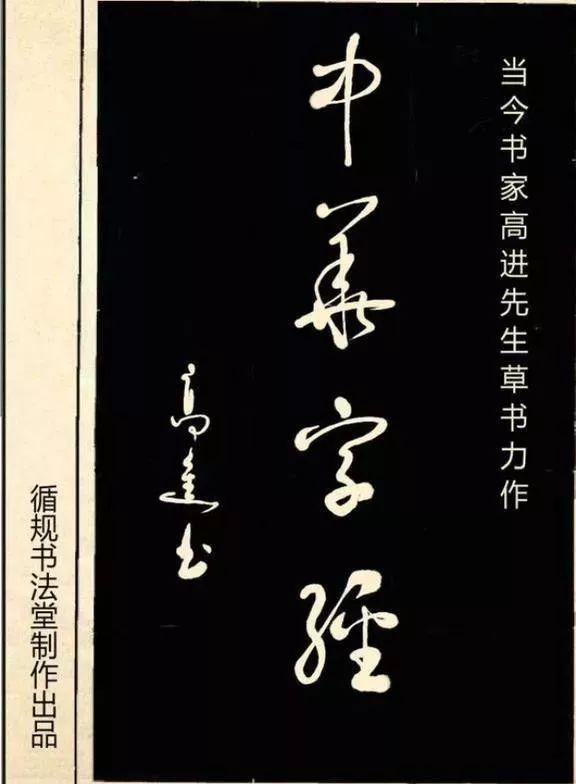 当今书家高进先生草书力作
中華字經
高進书
循规书法堂制作出品